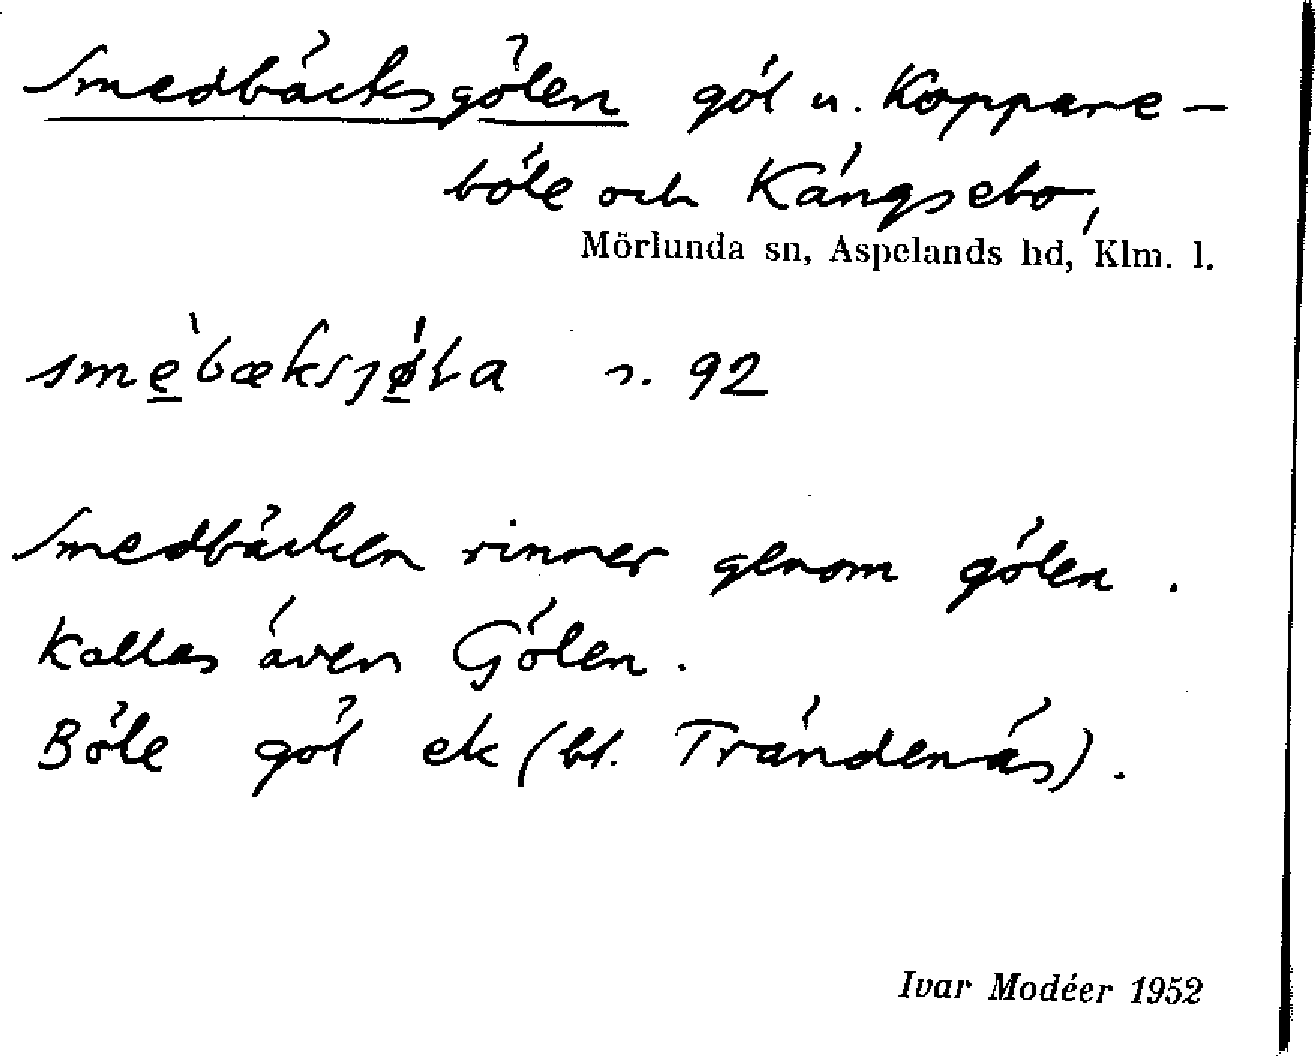 Smedbäcksgölen göl u. Koppare-
böle och Kängsebo,
Mörlunda sn, Aspelands hd, Klm. l.
s. 92
Smedbäcken rinner genom gölen.
Kallas även Gölen.
Böle göl ek (bl. Trändenäs).
Ivar Modéer 1952